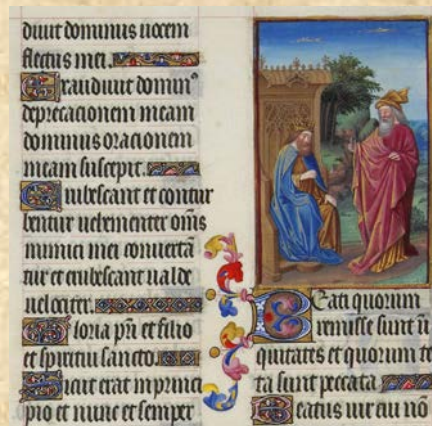 diuit dominus uocem
fletus mei.
Exaudiuit domin⁹
deprecacionem meam
dominus oracionem
meam suscepit.
Erubescant et contur
bentur uehementer om̄s
inimici mei conuertā
tur et erubescant ualde
uelociter.
Gloria p̄ri et filio
et spiritui sancto.
Sicut erat in princi
pio et nunc et semper
Beati quorum
remisse sunt in̄
quitates et quorum te
ta sunt peccata
Beatus uir cui nō